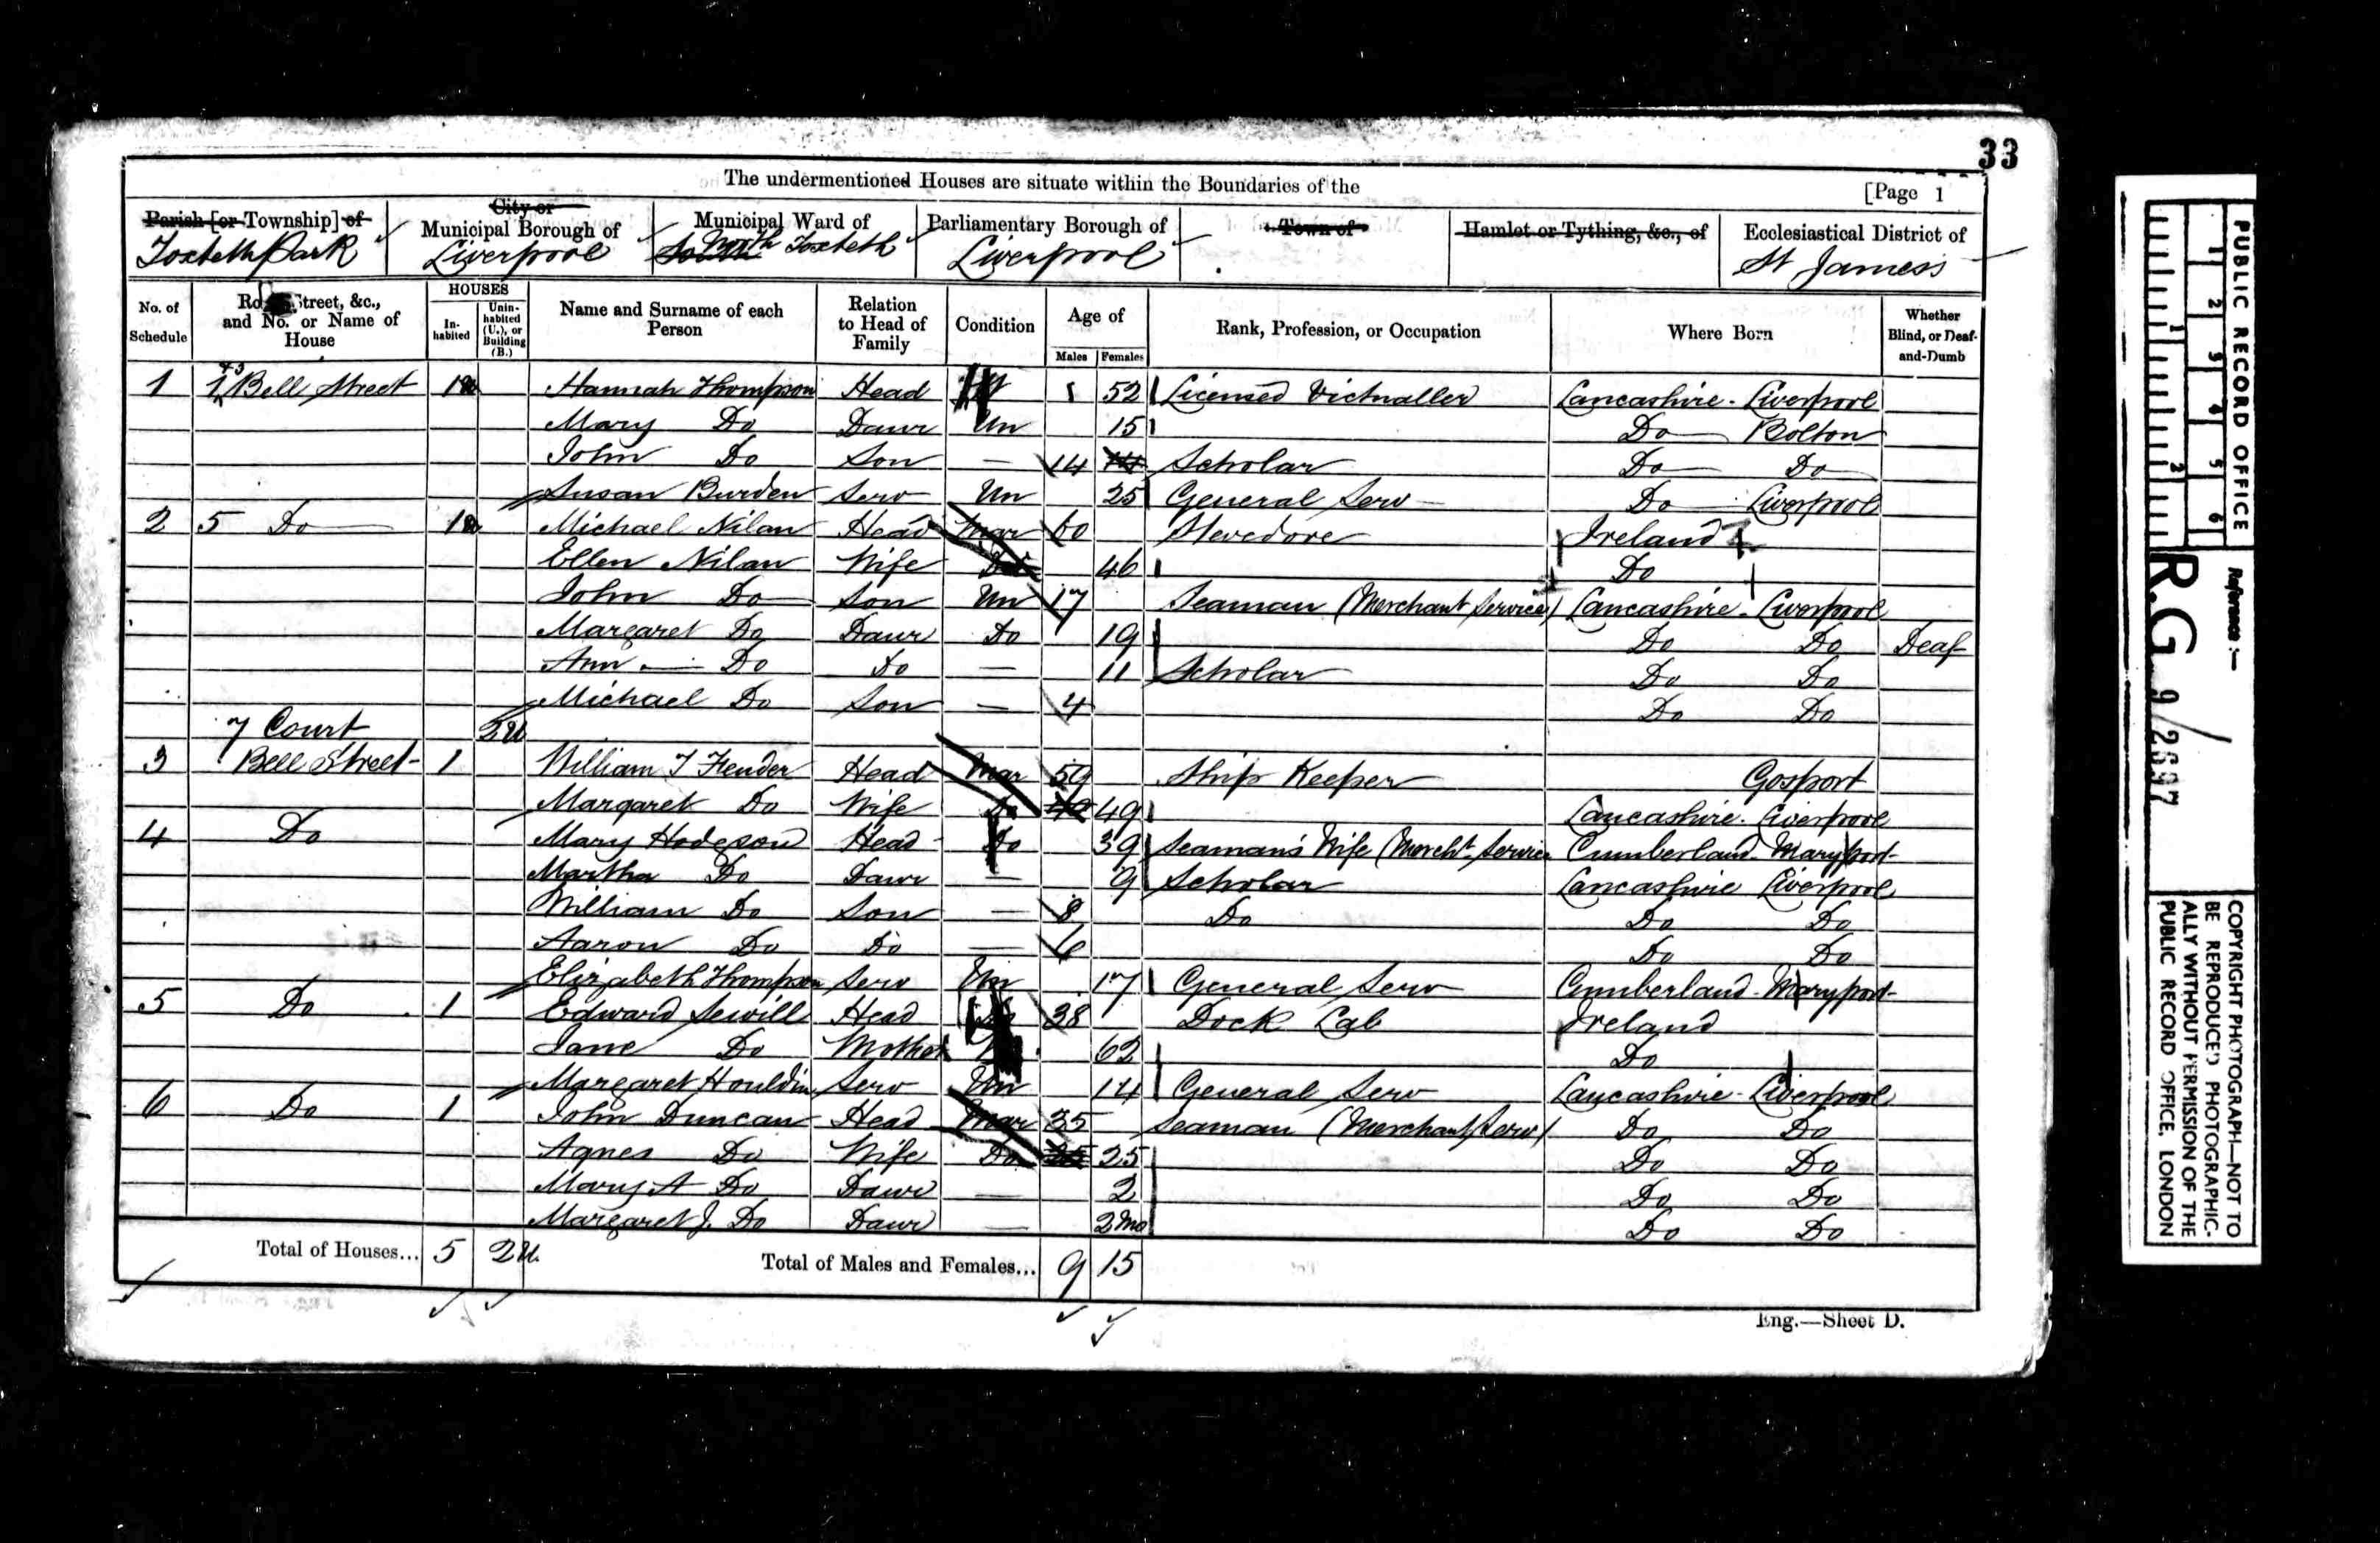 33
The undermentioned Houses are situate within the Boundaries of the [Page 1
Parish [or Township] of City or Municipal Borough of Municipal Ward of Parliamentary Borough of Town of Hamlet or Tything, &c., of Ecclesiastical District of
Toxteth Park Liverpool North Toxteth Liverpool St James's
No. of Schedule Street, &c., and No. or Name of House HOUSES Inhabited Uninhabited (U.), or Building (B.) Name and Surname of each Person Relation to Head of Family Condition Age of Males Females Rank, Profession, or Occupation Where Born Whether Blind, or Deaf-and-Dumb
1 Bell Street 1 Hannah Thompson Head 52 Licensed Victualler Lancashire - Liverpool
Mary Do Daur Un 15 Do Bolton
John Do Son — 14 Scholar Do Do
Susan Burden Serv Un 25 General Serv Do Liverpool
2 5 Do 1 Michael Nilan Head Mar 60 Stevedore Ireland
Ellen Nilan Wife Do 46 Do
John Do Son Un 17 Seaman (Merchant Service) Lancashire - Liverpool
Margaret Do Daur Do 19 Do Do Deaf
Ann Do Do — 11 Scholar Do Do
Michael Do Son — 4 Do Do
7 Court 2U
3 Bell Street 1 William T Fender Head Mar 59 Ship Keeper Gosport
Margaret Do Wife Do 49 Lancashire - Liverpool
4 Do Mary Hodgson Head Do 39 Seaman's Wife (Mercht Service Cumberland - Maryport
Martha Do Daur — 9 Scholar Lancashire Liverpool
William Do Son — 8 Do Do Do
Aaron Do Do — 6 Do Do
Elizabeth Thompson Serv Un 17 General Serv Cumberland - Maryport
5 Do 1 Edward Sewill Head 38 Dock Lab Ireland
Jane Do Mother 62 Do
Margaret Houldin Serv Un 14 General Serv Lancashire - Liverpool
6 Do 1 John Duncan Head Mar 35 Seaman (Merchant Serv) Do Do
Agnes Do Wife Do 25 Do Do
Mary A Do Daur — 2 Do Do
Margaret J. Do Daur — 2 Mo Do Do
Total of Houses... 5 2U. Total of Males and Females... 9 15
Eng.—Sheet D.
PUBLIC RECORD OFFICE
1 2 3 4 5 6
1 2
Reference :—
R.G. 9/2697
COPYRIGHT PHOTOGRAPH—NOT TO
BE REPRODUCED PHOTOGRAPHIC-
ALLY WITHOUT PERMISSION OF THE
PUBLIC RECORD OFFICE, LONDON